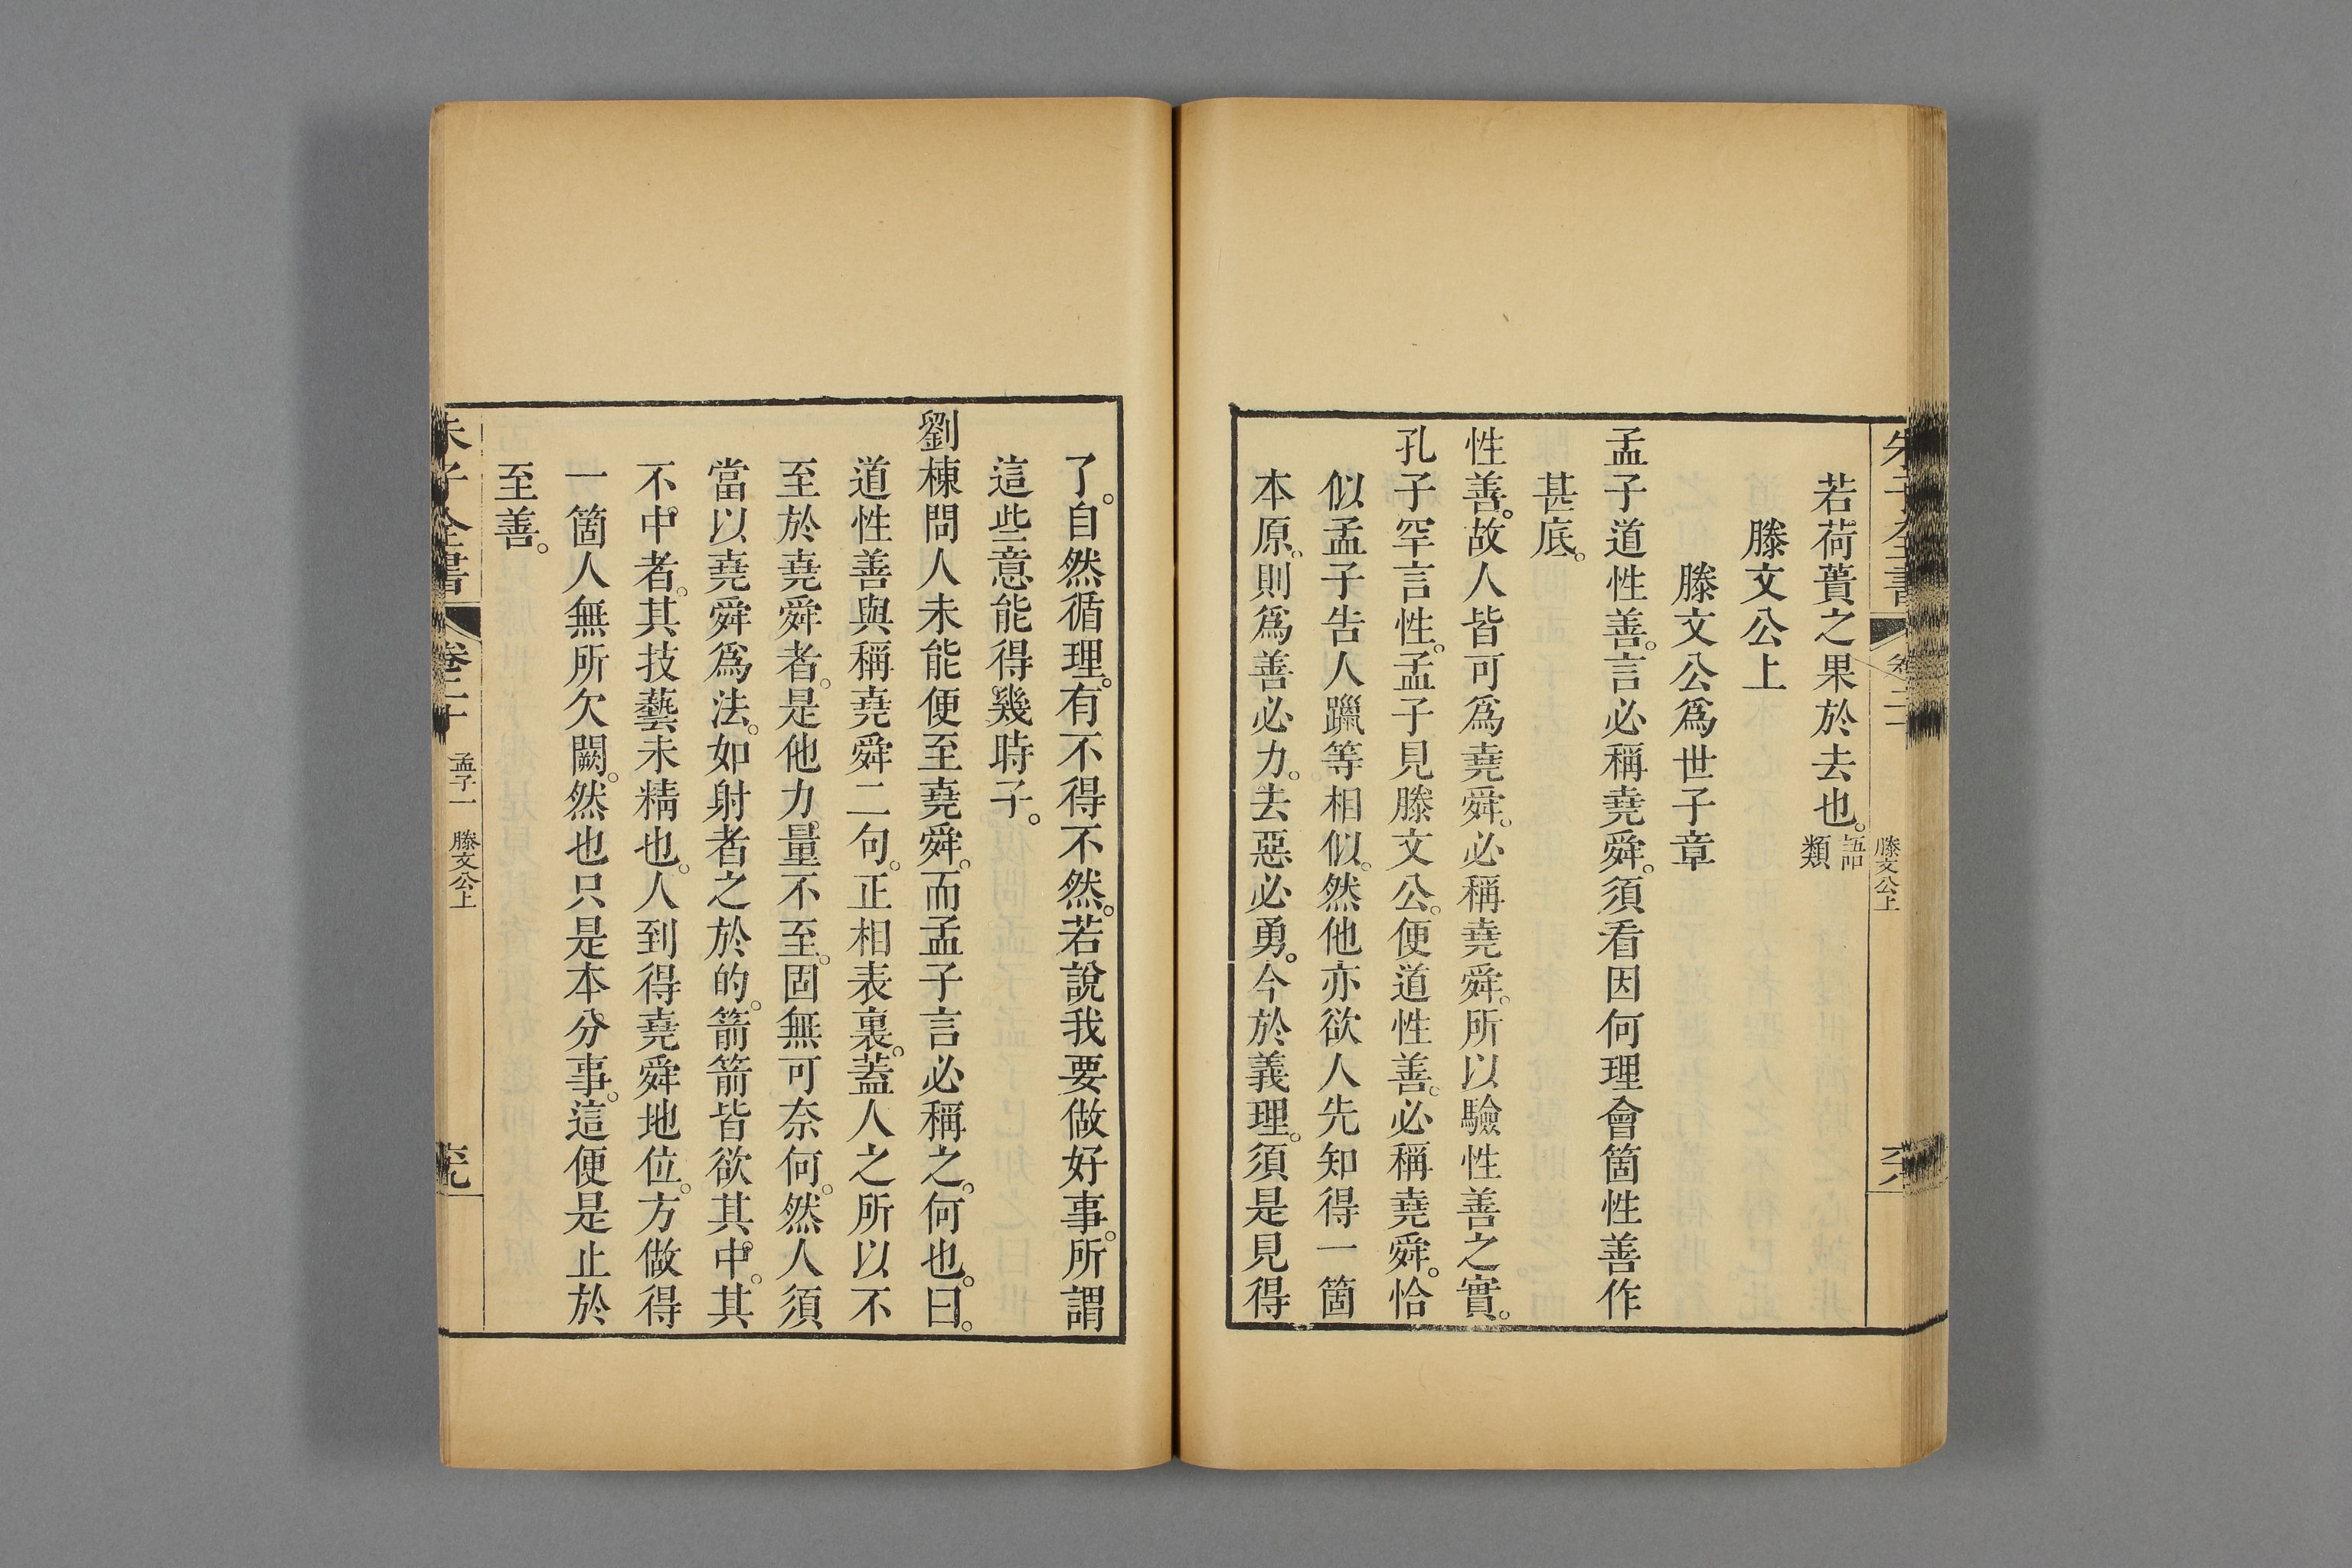 滕文公上
若荷蕢之果於去也。語類
滕文公上
滕文公爲世子章
孟子道性善。言必稱堯舜。須看因何理會箇性善作
甚底。
性善。故人皆可爲堯舜。必稱堯舜。所以驗性善之實。
孔子罕言性。孟子見滕文公。便道性善。必稱堯舜。恰
似孟子告人躐等相似。然他亦欲人先知得一箇
本原。則爲善必力。去惡必勇。今於義理。須是見得
了。自然循理。有不得不然。若說我要做好事。所謂
這些意能得幾時子。
劉棟問人未能便至堯舜。而孟子言必稱之。何也。曰。
道性善與稱堯舜二句。正相表裏。蓋人之所以不
至於堯舜者。是他力量不至。固無可奈何。然人須
當以堯舜爲法。如射者之於的。箭箭皆欲其中。其
不中者。其技藝未精也。人到得堯舜地位。方做得
一箇人無所欠闕。然也只是本分事。這便是止於
至善。
朱子全書 卷二十 孟子一 滕文公上